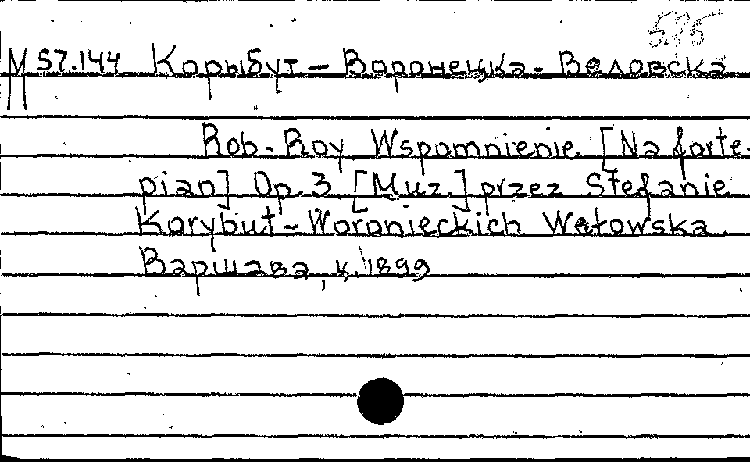 5.75
М 57.144 Корыбут-Воронецка-Веловска
Rob-Roy Wspomnienie. [Na forte-
pian] Op. 3 [Muz.] przez Stefanie
Korybut-Woronieckich Wełowska.
Варшава, к. 1899